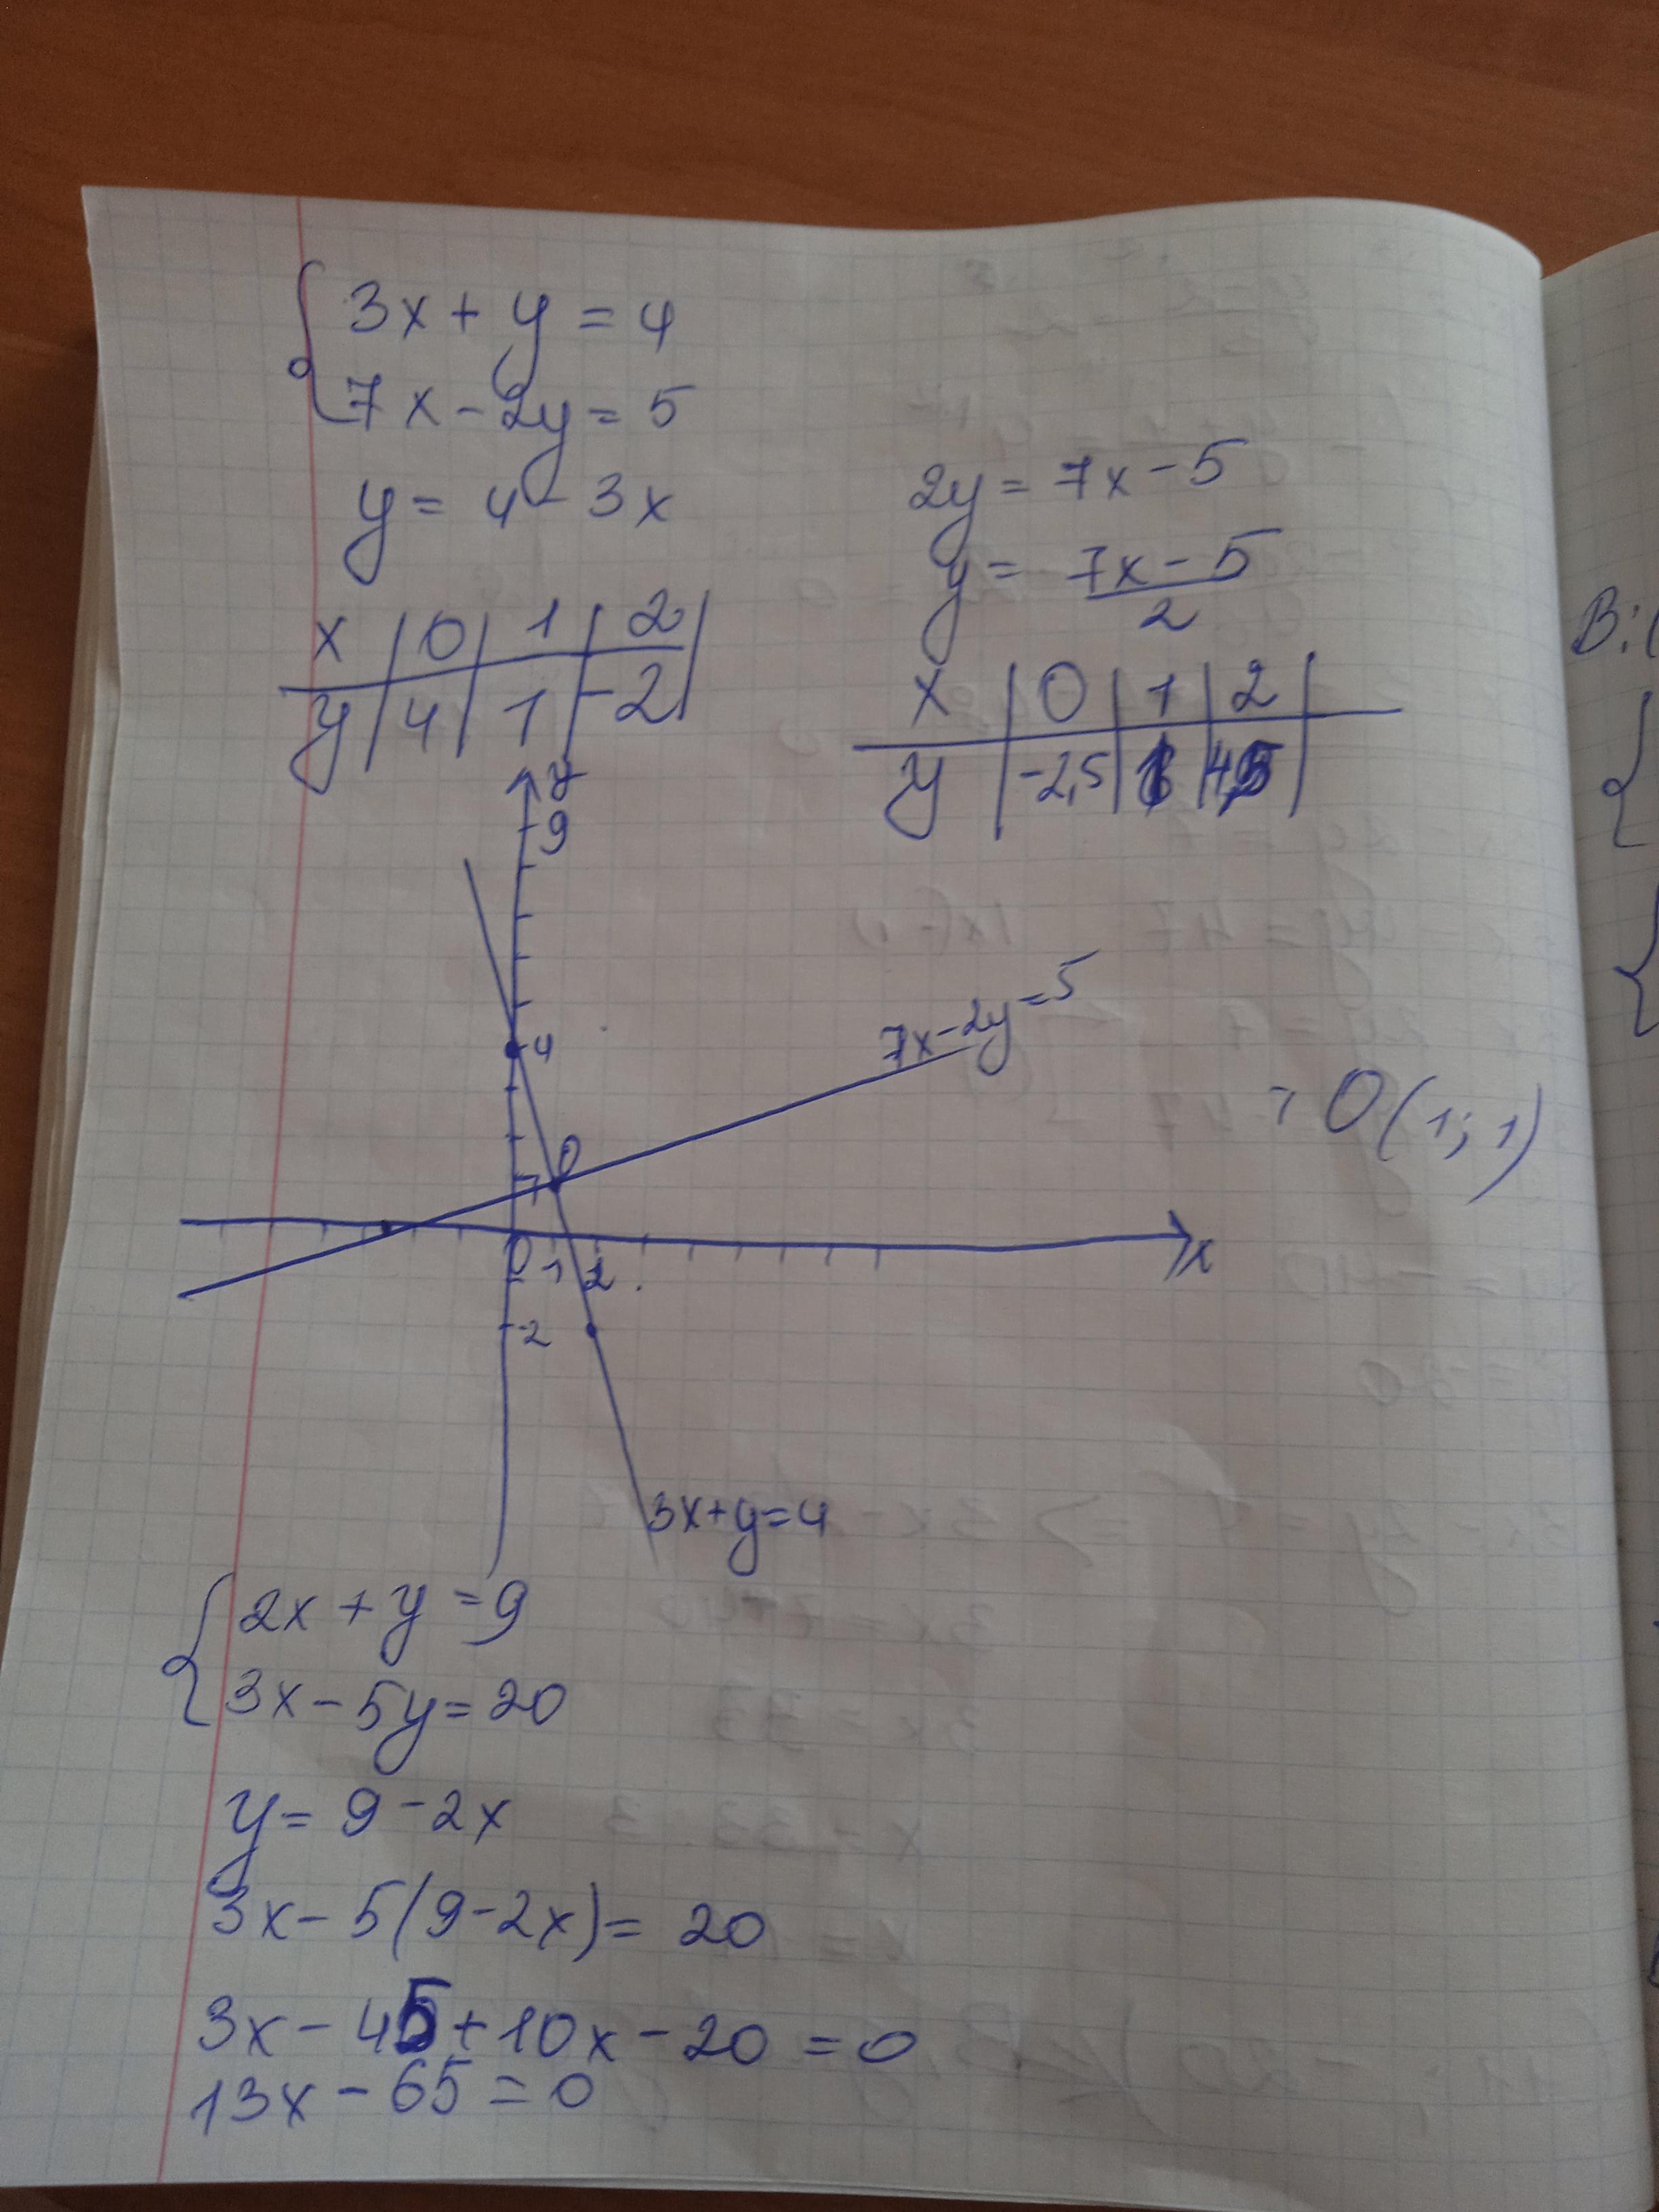 3x + y = 4
7x - 2y = 5
y = 4 - 3x
2y = 7x - 5
y = 7x - 5
2
x | 0 | 1 | 2 |
y | 4 | 1 | -2 |
x | 0 | 1 | 2 |
y | -2,5 | 1 | 4,5 |
y
9
4
1
0 1 2
x
-2
0
7x - 2y = 5
0 (1; 1)
3x + y = 4
2x + y = 9
3x - 5y = 20
y = 9 - 2x
3x - 5(9 - 2x) = 20
3x - 45 + 10x - 20 = 0
13x - 65 = 0
B: (